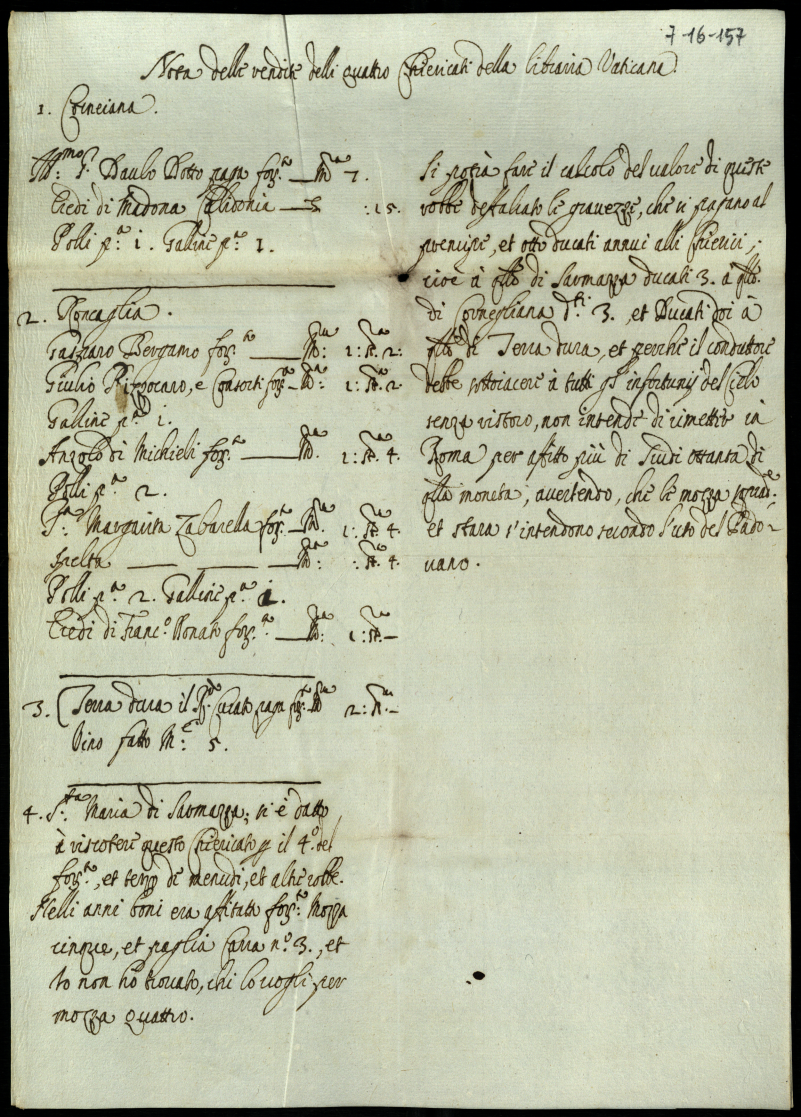 7-16-157
Nota delle rendite delli quattro Chiericati della libraria Vaticana.
1. Corneciana.
Ill:mo S.r Paulo Dotto paga for:to — M.a 7.
Eredi di Madona Calidonia — :15.
Polli p.a 1. Galline p.a 1.
2. Roncaglia.
Gasparo Bergamo for:to — M.a 1: St.a 2:
Giulio Rizzocaro, e Consorti for:to — M.a 1: St.a 2
Galline p.a 1.
Anzolo di Michieli for:to — M.a 1: St.a 4.
Polli p.a 2.
S.ra Margarita Zabarella for:to — M.a 1: St.a 4
Spelta — — — M.a : St.a 4.
Polli p.a 2. Galline p.a 1.
Eredi di Franc.o Donato for:to — M.a 1: St.a —
3. Terra dura il R.do Curato paga for:to M.a 2: St.a —
Vino fatto M.i 5.
4. S.ta Maria di Sarmazza; si è datto
à riscotere questo Chiericato p il 4.o del
for:to, et terzo de menudi, et altre robbe.
Nelli anni boni era affittata for:to Mozza
cinque, et paglia Carra n.o 3., et
Io non hò trovato, chi lo vogli per
mozza quattro.
Si potrà fare il calcolo del valore di queste
robbe deffalcato le gravezze, che si pagano al
prencipe, et otto ducati annui alli Chierici,
cioè à q̃llo di Sarmazza ducati 3. à q̃llo
di Cornegliana d.ti 3., et Ducati doi à
q̃llo di Terra dura, et perche il conduttore
debbe sottoiacere à tutti gl'infortunij del Cielo
senza ristoro, non intende di rimetter in
Roma per affitto più di Scudi ottanta di
q̃lla moneta, avertendo, che le mozza,
et stara s'intendono secondo l'uso del Pado-
uano.